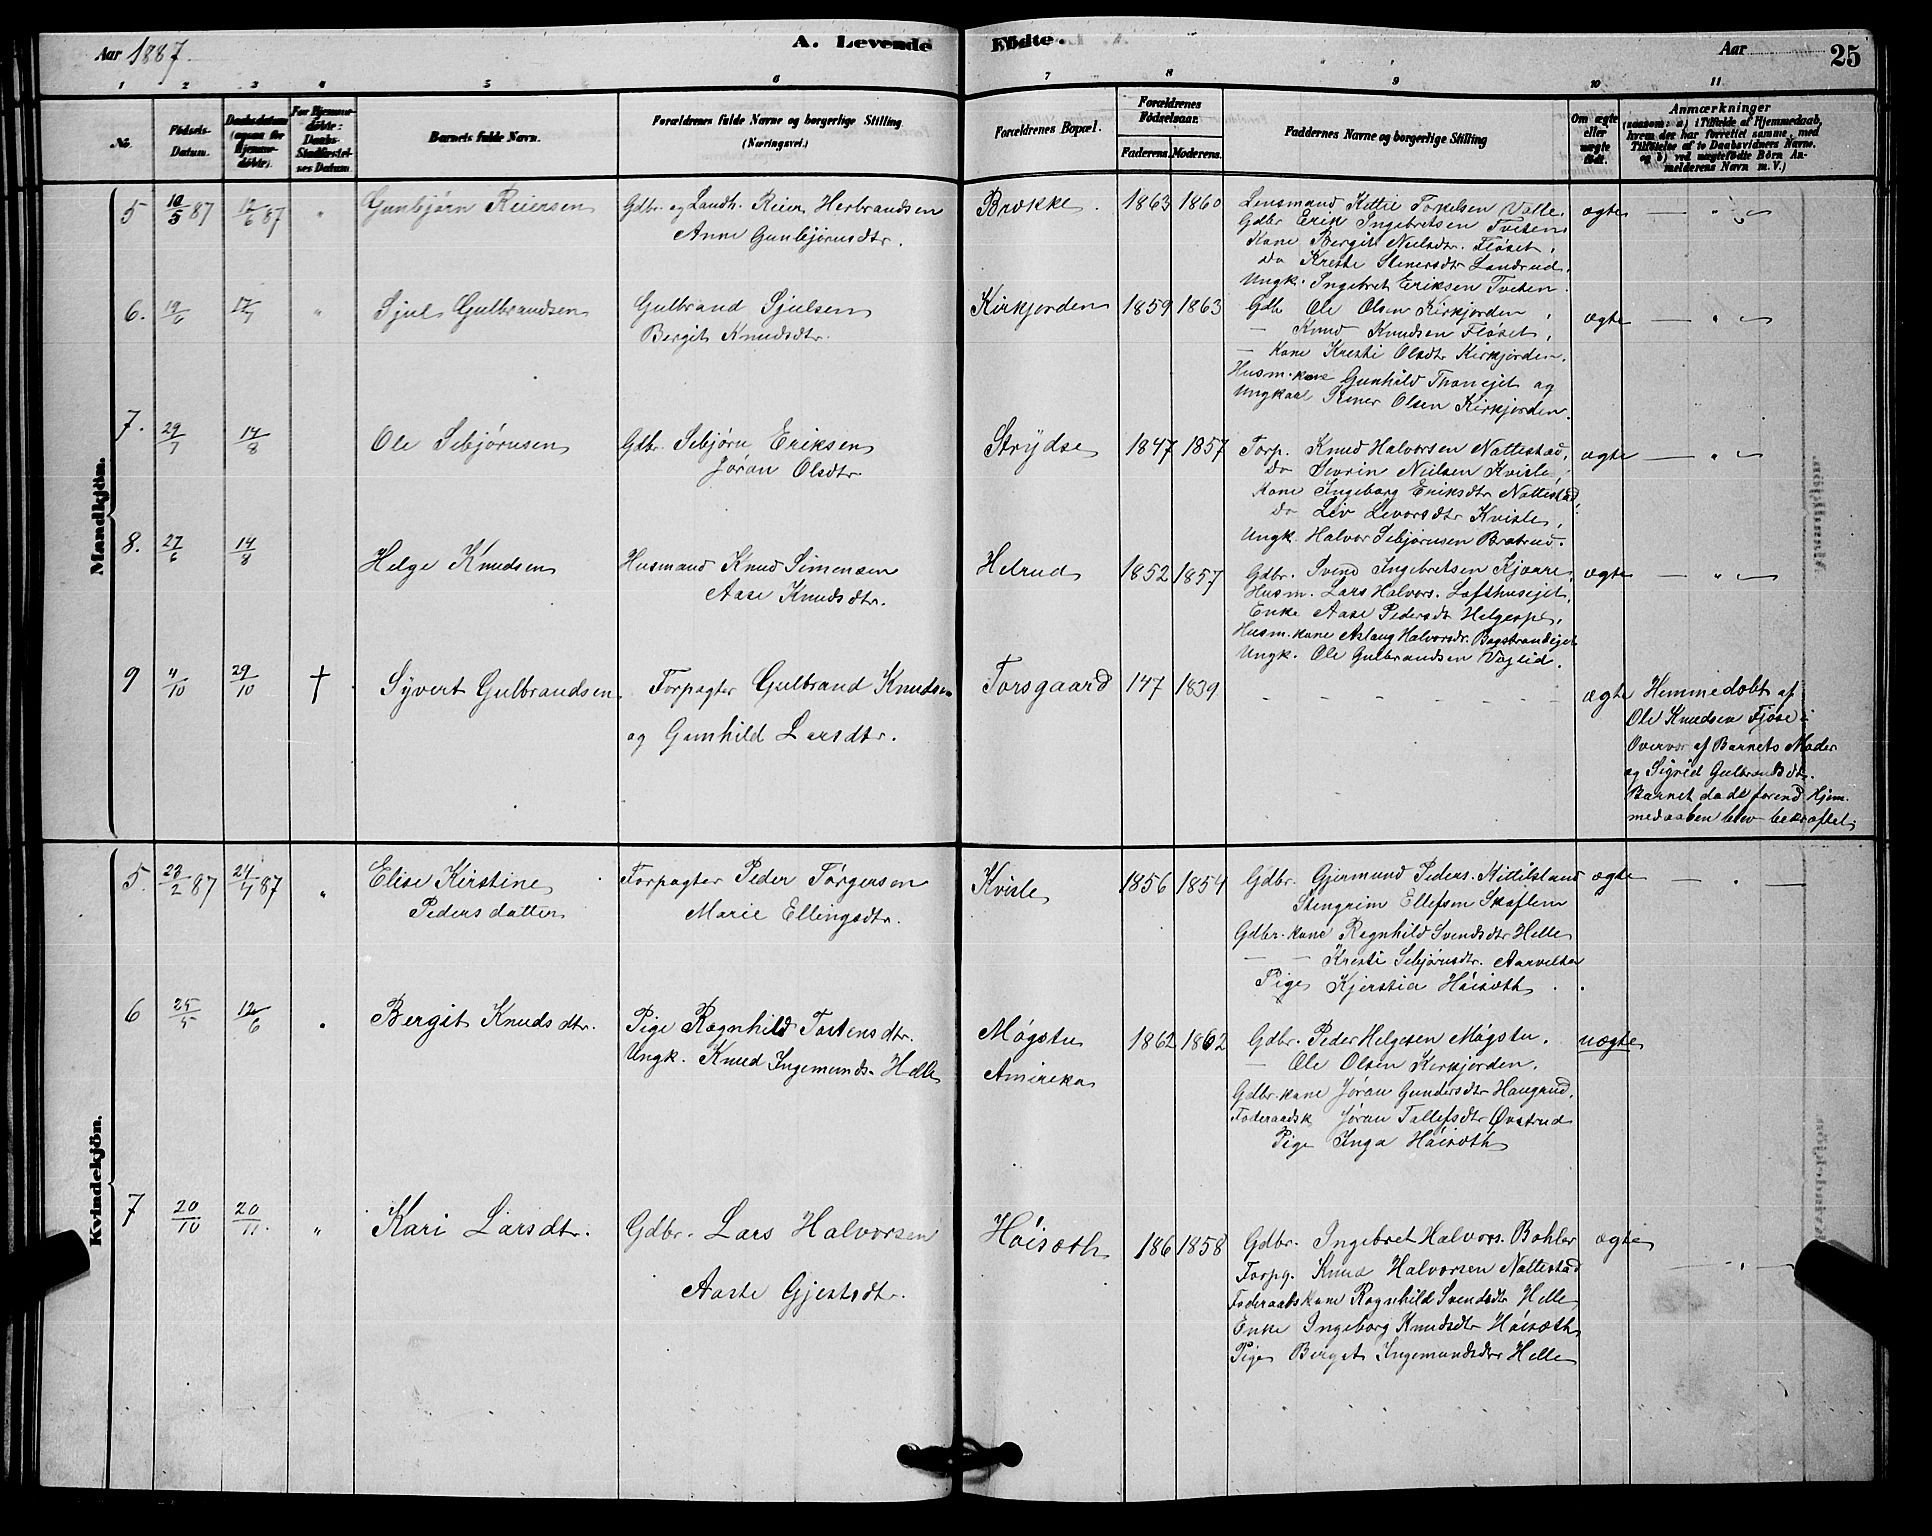 Aar 1887
A. Levende Födte.
Aar
25
1 2 3 4 5 6 7 8 9 10 11
No.
Födsels-Datum.
Daabsdatum (ogsaa for Hjemmedöbte).
For Hjemmedöbte: Daabs-Stadfæstelses Datum.
Barnets fulde Navn.
Forældrenes fulde Navne og borgerlige Stilling (Næringsvei.)
Forældrenes Bopæl.
Forældrenes Födselsaar.
Faderens. Moderens.
Faddernes Navne og borgerlige Stilling
Om ægte eller uægte födt.
Anmærkninger
(saasom: a) i Tilfælde af Hjemmedaab, hvem der har forrettet samme, med Tilföielse af to Daabsvidners Navne. og b) ved uægtefödte Börn Anmelderens Navn m. V.)
Mandkjön.
5 10/5 87 12/6 87 " Gunbjørn Reiersen
Gdbr. og Landh. Reier Herbrandsen
Anne Gunbjørnsdtr.
Brokke. 1863 1860
Lensmand Kittil Torkelsen Valle
Gdbr Erik Ingebretsen Tveten
Kone Bergit Nielsdtr. Fløset,
Do Kristi Stenersdtr Landrud,
Ungk. Ingebret Eriksen Tveten.
ægte — " —
6. 19/6 17/7 " Sjul Gulbrandsen
Gulbrand Sjulsen
Bergit Knudsdtr.
Kirkjorden 1859 1863
Gdb Ole Olsen Kirkjorden,
— Knud Knudsen Fløset,
— Kone Kristi Olsdtr Kirkjorden.
Husm. kone Gunhild Thoneiet og
Ungkarl Stener Olsen Kirkjorden.
ægte — " —
7. 29/7 14/8 Ole Sebjørnsen
Gdbr. Sebjørn Eriksen
Jøran Olsdtr
Strydse 1847 1857
Forp. Knud Halvorsen Nattestad,
Do Sevrin Nielsen Kvisle,
Kone Ingeborg Eriksdtr Nattestad,
Do Liv Levorsdtr Kvisle,
Ungk. Halvor Sebjørnsen Bratrud.
ægte — " —
8. 27/6 14/8 Helge Knudsen
Husmand Knud Simensen
Aase Knudsdtr.
Helrud 1852 1857
Gdbr. Svend Ingebretsen Kjønre,
Husm. Lars Halvors. Lofthuseiet,
Enke Aase Pedersdtr Helgesp.,
Husm. kone Aslaug Halvorsdr. Bagstrandeiet
Ungk. Ole Gulbrandsen Vaglid.
ægte — " —
9 4/10 29/10 † Syvert Gulbrandsen
Forpagter Gulbrand Knudsen
og Gunhild Larsdtr.
Torsgaard 147 1839
– – – – – –
ægte
Hemmedøbt af
Ole Knudsen Fjøse i
Overvær af Barnets Moder
og Sigrid Gulbrandsdtr.
Barnet døde førend Hjem-
medaaben blev bekræftet.
Kvindekjön.
5. 23/2 87 24/4 87 " Elise Kirstine
Pedersdatter
Forpagter Peder Torgersen
Marie Ellingsdtr.
Kvisle 1856 1854
Gdbr. Gjermund Peders. Kittilsland
Stengrim Ellefsen Skaflem
Gdbr. kone Ragnhild Svendsdtr Helle
— — Kristi Sebjørnsdtr. Aarvelta
Pige Kjerstia Høisæth.
ægte — " —
6 25/5 12/6 " Bergit Knudsdtr.
Pige Ragnhild Tostensdtr.
Ungk. Knud Ingemunds. Helle
Møgstu
Amerika
1862 1862
Gdbr. Peder Helgesen Møgstu.
— Ole Olsen Kirkjorden.
Gdbr. kone Jøran Gundersdtr Haugrud,
Føderaadsk Jøran Tollefsdtr Øvstrud
Pige Inga Høisæth
uægte
7 20/10 20/11 " Kari Larsdtr.
Gdbr. Lars Halvorsen
Aaste Gjestsdtr.
Høisæth 186 1858
Gdbr. Ingebret Halvors. Bohler
Forpg. Knud Halvorsen Nattestad
Føderaadskone Ragnhild Svendsdtr Helle
Enke Ingeborg Knudsdtr Høisæth
Pige Bergit Ingemundsdtr Helle
ægte — " —